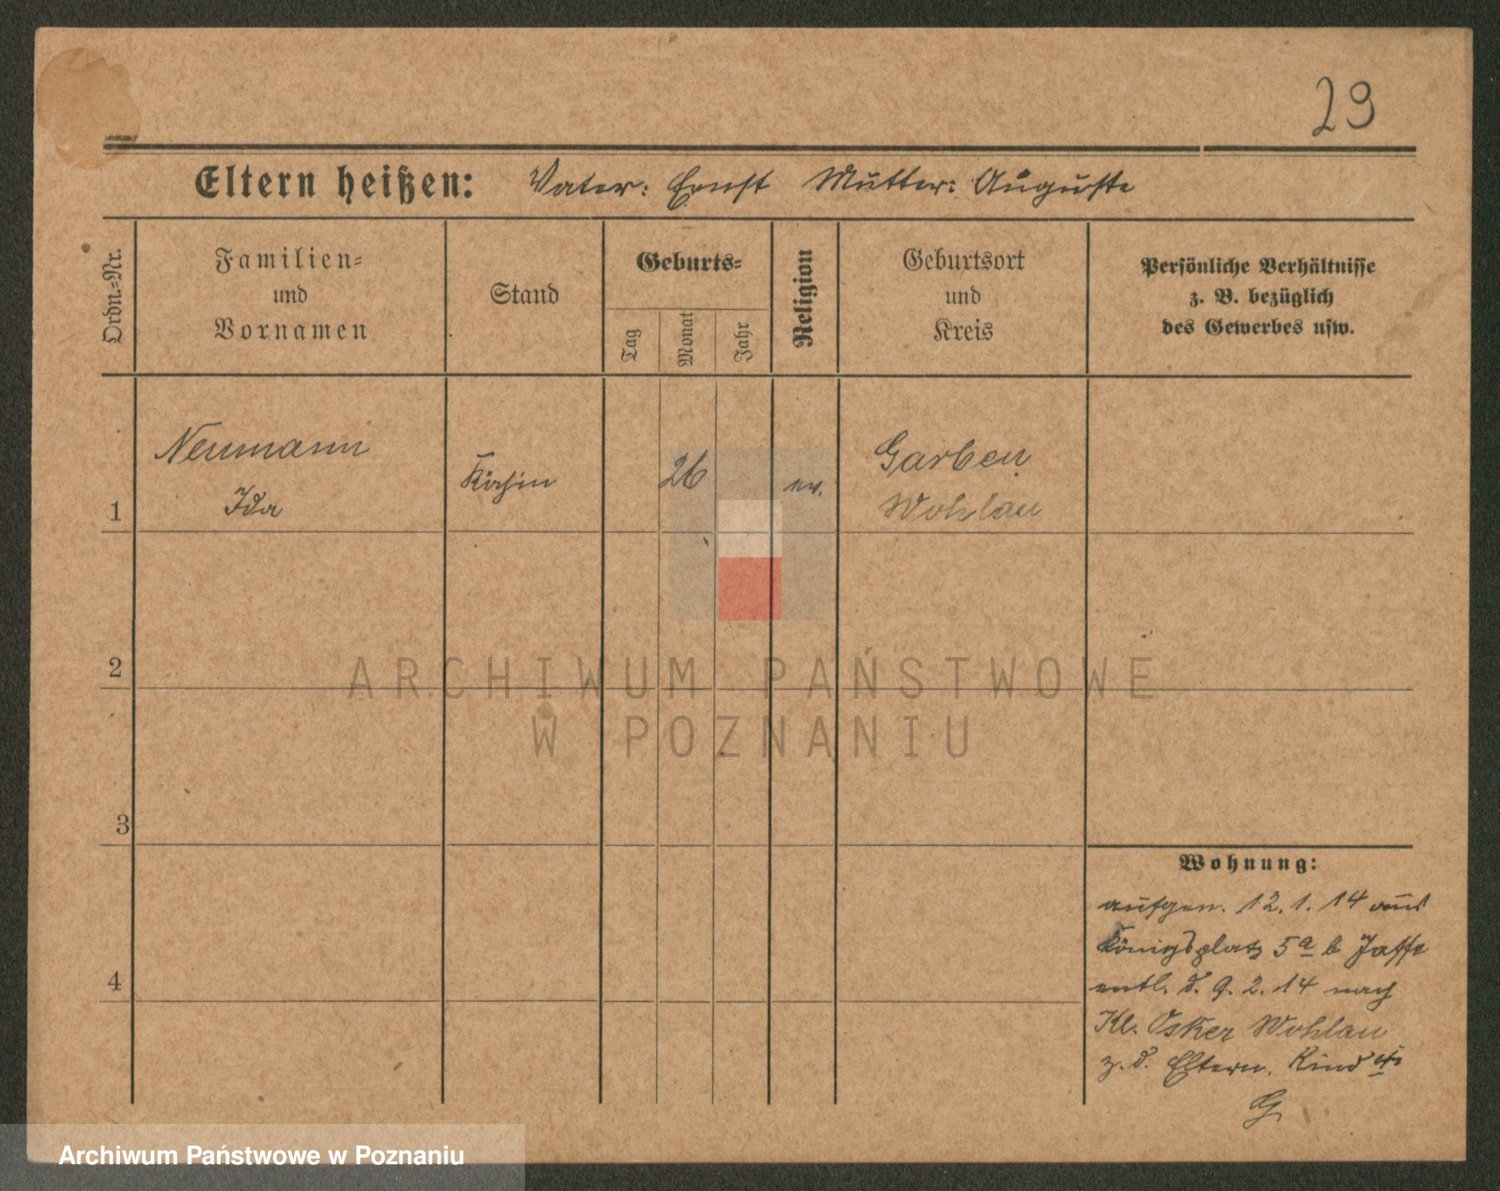 29
Eltern heißen: Vater: Ernst Mutter: Auguste
Ordn.-Nr.
Familien-
und
Vornamen
Stand
Geburts-
Tag
Monat
Jahr
Religion
Geburtsort
und
Kreis
Persönliche Verhältnisse
z. B. bezüglich
des Gewerbes usw.
1
Neumann
Ida
Köchin
26
ev.
Garben
Wohlau
2
3
4
Wohnung:
aufgen. 12. 1. 14 aus
Königsplatz 5a b Jaffe
entl. d. 9. 2. 14 nach
Kl. Osker Wohlau
z. d. Eltern. Kind
G
ARCHIWUM PAŃSTWOWE
W POZNANIU
Archiwum Państwowe w Poznaniu